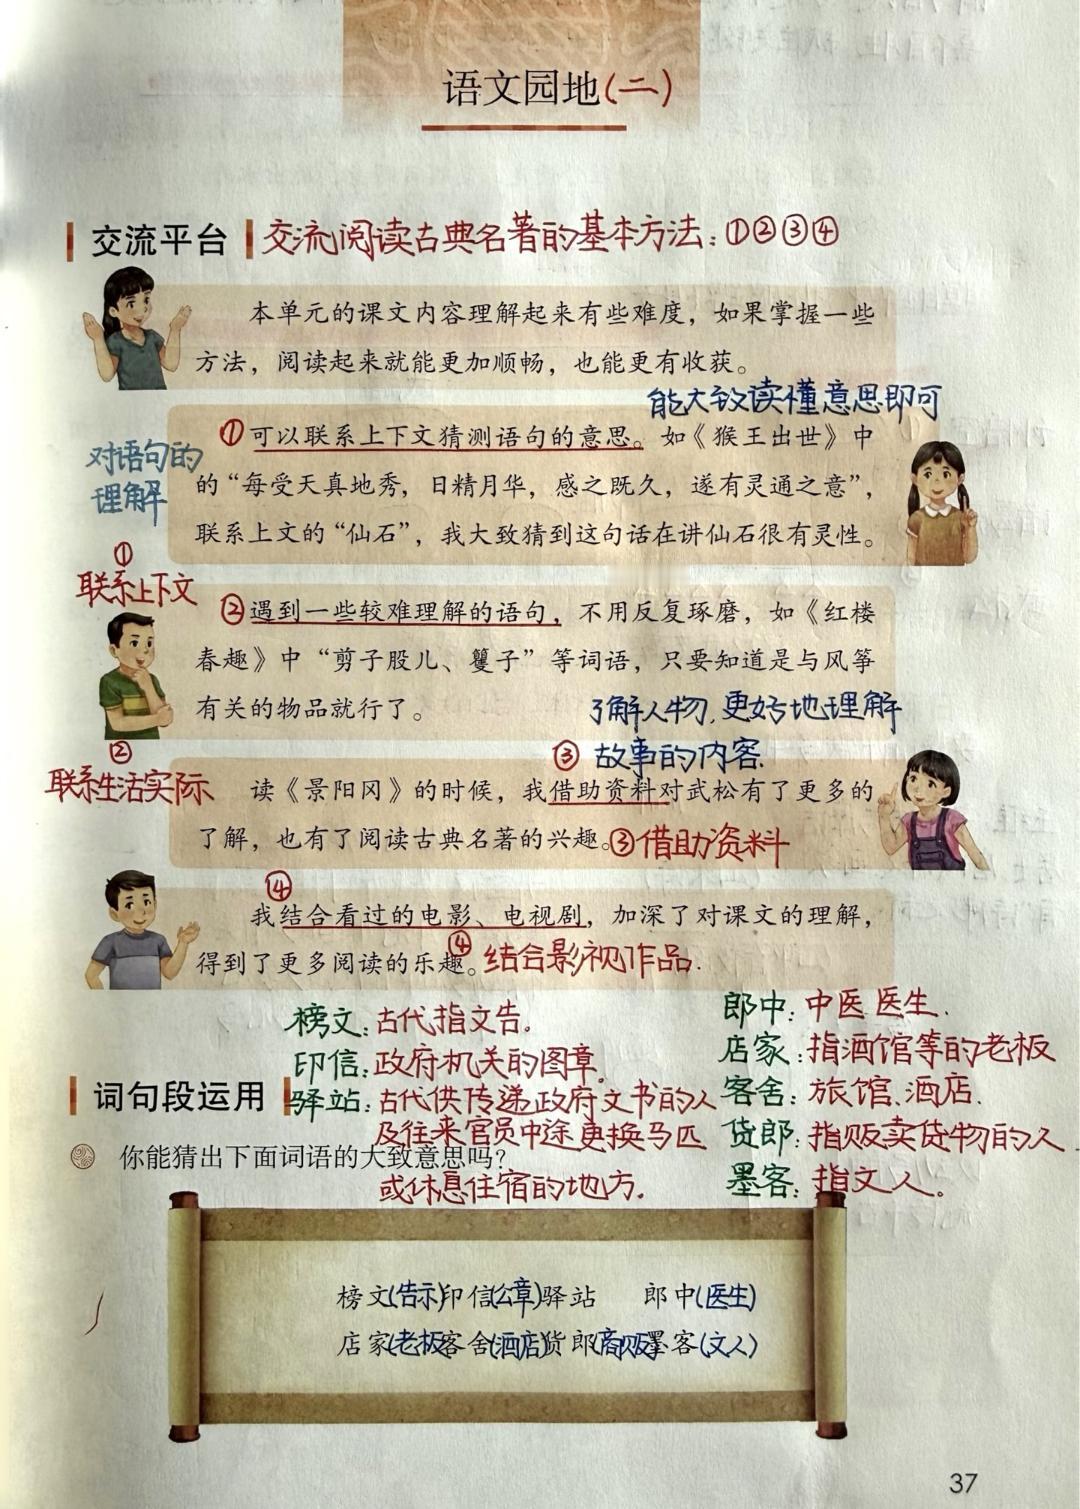 语文园地(二)
交流平台 交流阅读古典名著的基本方法:①②③④
本单元的课文内容理解起来有些难度，如果掌握一些
方法，阅读起来就能更加顺畅，也能更有收获。
能大致读懂意思即可
①可以联系上下文猜测语句的意思。如《猴王出世》中
的“每受天真地秀，日精月华，感之既久，遂有灵通之意”，
联系上文的“仙石”，我大致猜到这句话在讲仙石很有灵性。
对语句的
理解
①
联系上下文
②遇到一些较难理解的语句，不用反复琢磨，如《红楼
春趣》中“剪子股儿、籰子”等词语，只要知道是与风筝
有关的物品就行了。
了解人物,更好地理解
故事的内容.
②
联系生活实际
③
读《景阳冈》的时候，我借助资料对武松有了更多的
了解，也有了阅读古典名著的兴趣。③借助资料
④
我结合看过的电影、电视剧，加深了对课文的理解，
得到了更多阅读的乐趣。④结合影视作品.
榜文:古代指文告.
印信:政府机关的图章.
驿站:古代供传递政府文书的人
及往来官员中途更换马匹
或休息住宿的地方.
郎中:中医医生.
店家:指酒馆等的老板
客舍:旅馆、酒店.
货郎:指贩卖货物的人.
墨客:指文人。
词句段运用
你能猜出下面词语的大致意思吗？
榜文(告示)印信(公章)驿站 郎中(医生)
店家(老板)客舍(酒店)货郎(商贩)墨客(文人)
37